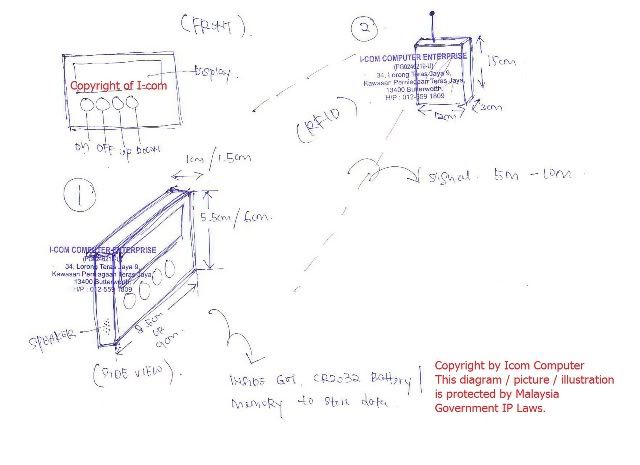 (FRONT)
Display
Copyright of I-com
ON OFF up DOWN
2
I-COM COMPUTER ENTERPRISE
34, Lorong Teras Jaya 9,
Kawasan Perniagaan Teras Jaya,
13400 Butterworth.
H/P : 012-559 1809
15cm
3cm
12cm
(RFID)
signal. 5m - 10m.
1
1cm / 1.5cm
5.5cm / 6cm
I-COM COMPUTER ENTERPRISE
34, Lorong Teras Jaya 9,
Kawasan Perniagaan Teras Jaya,
13400 Butterworth.
H/P : 012-559 1809
8.5cm
or
9cm
SPEAKER
(SIDE VIEW)
INSIDE GOT, CR2032 Battery
memory to store data.
Copyright by Icom Computer
This diagram / picture / illustration
is protected by Malaysia
Government IP Laws.